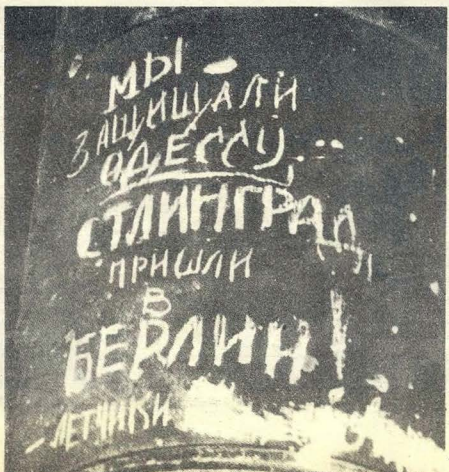 МЫ -
ЗАЩИЩАЛИ
ОДЕССУ,
СТЛИНГРАД,
ПРИШЛИ
В
БЕРЛИН!
- ЛЕТЧИКИ